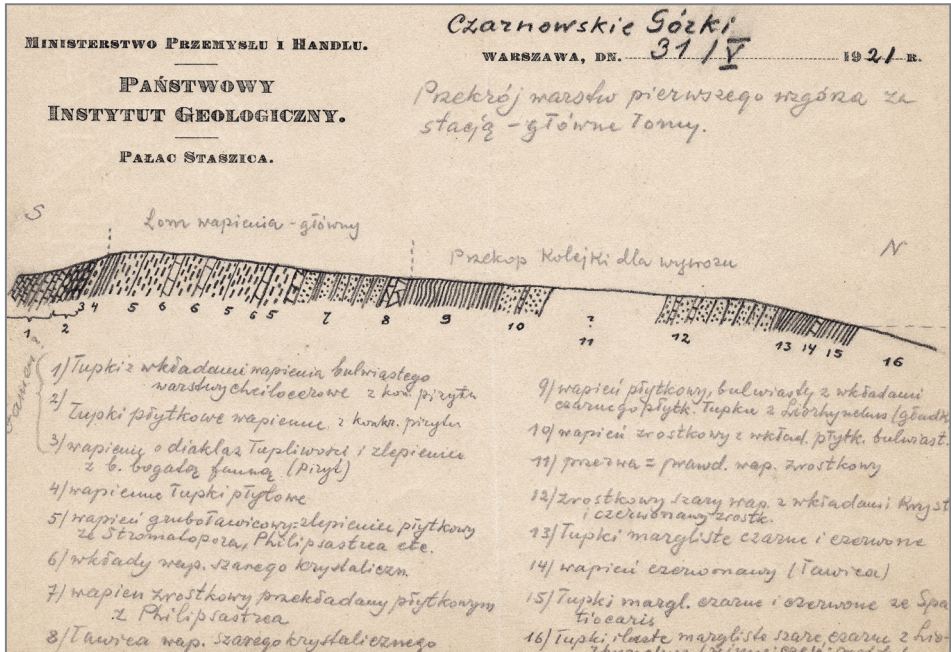 MINISTERSTWO PRZEMYSŁU I HANDLU.
PAŃSTWOWY
INSTYTUT GEOLOGICZNY.
PAŁAC STASZICA.
Czarnowskie Górki
WARSZAWA, DN. 31/V 1921 R.
Przekrój warstw pierwszego wzgórza za
stacją – główne łomy.
S
Łom wapienia – główny
Przekop Kolejki dla wywozu
N
1 2 3 4 5 6 6 5 6 5 7 8 9 10 ? 11 12 13 14 15 16
1/ Łupki z wkładami wapienia bulwiastego
warstwy cheilocerowe z kon. pirytu
2/ Łupki płytkowe wapienne, z konkr. pirytu
3/ wapienie o diaklaz łupliwości i zlepieniec
z b. bogatą fauną (piryt)
4/ wapienne łupki płytowe
5/ wapień gruboławicowy: zlepieniec płytkowy
ze Stromatopora, Philipsastrea etc.
6/ wkłady wap. szarego krystaliczn.
7/ wapien zrostkowy przekładany płytkowym
z Philipsastrea
8/ Ławica wap. szarego krystalicznego
9/ wapień płytkowy, bulwiasty z wkładami
czarnego płytk. łupku z Liorhynchus
10/ wapień zrostkowy z wkład. płytk. bulwiast.
11/ przerwa = prawd. wap. zrostkowy
12/ zrostkowy szary wap. z wkładami Kryst
i czerwonawy zrostk.
13/ Łupki margliste czarne i czerwone
14/ wapień czerwonawy (Ławica)
15/ Łupki margl. czarne i czerwone ze Spa
tiocaris
16/ Łupki ilaste margliste szare, czarne z Lio-